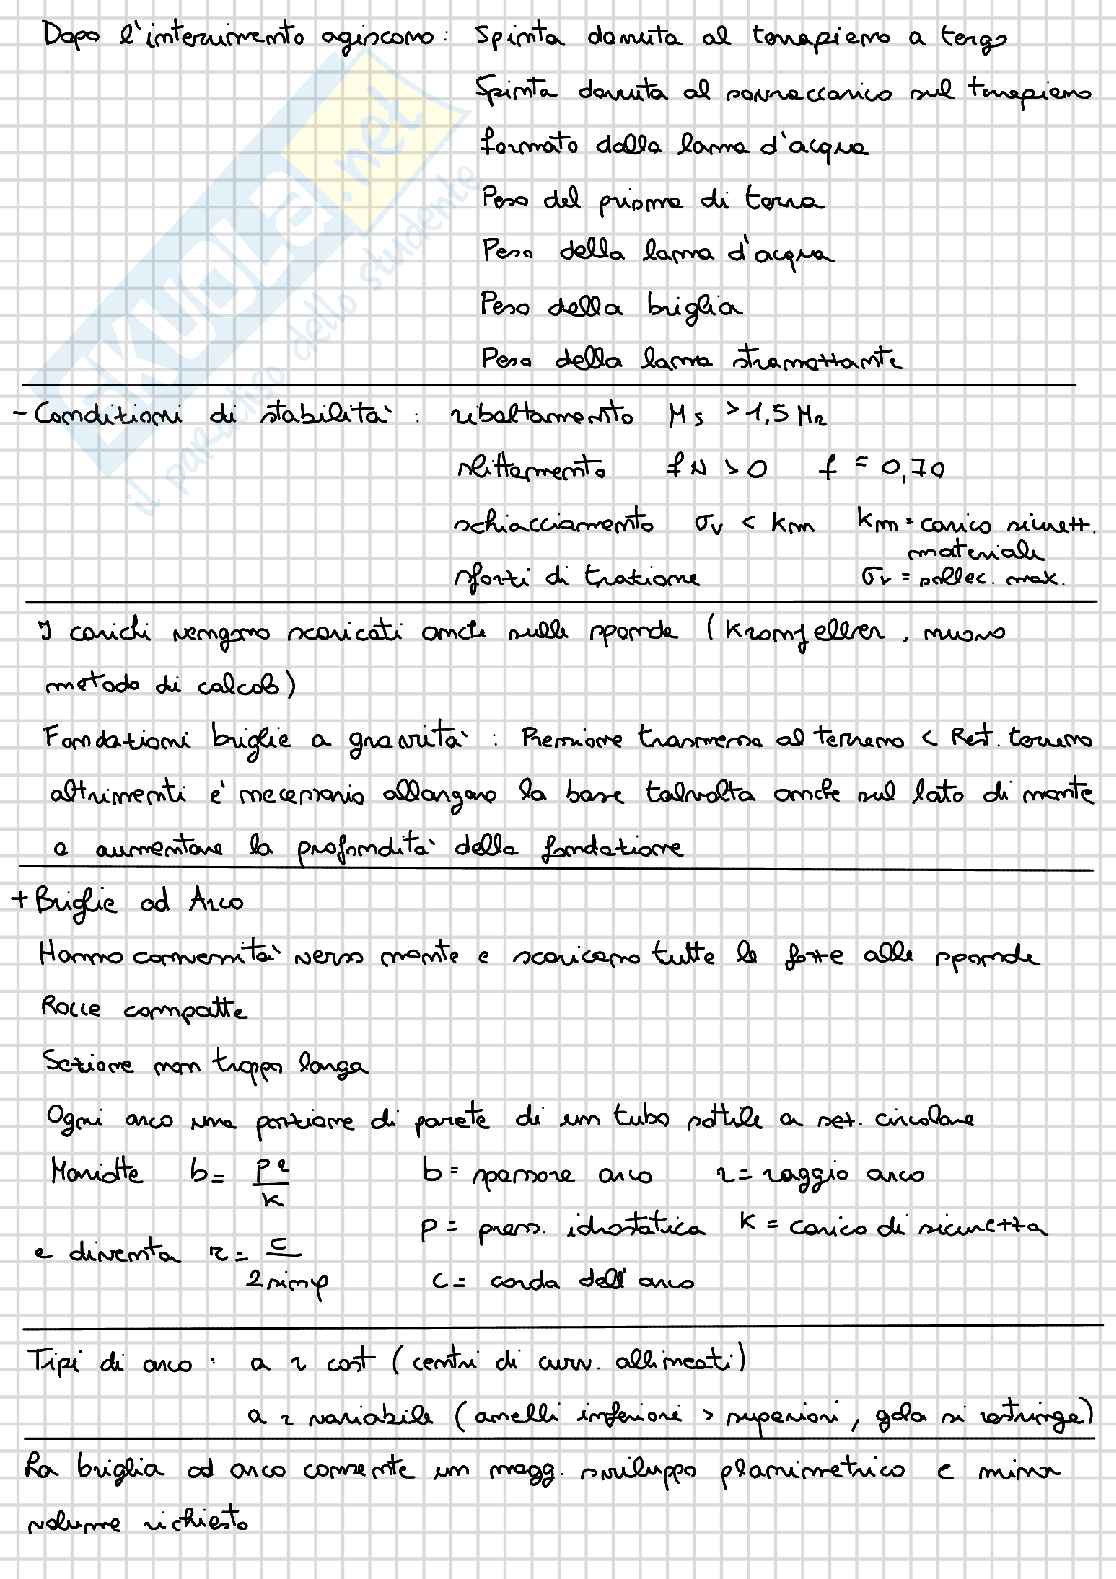 Dopo l'interrimento agiscono: Spinta dovuta al terrapieno a tergo
Spinta dovuta al sovraccarico sul terrapieno
formato dalla lama d'acqua
Peso del prisma di terra
Peso della lama d'acqua
Peso della briglia
Peso della lama stramazzante
- Condizioni di stabilità: ribaltamento Ms > 1,5 MR
slittamento fN > 0 f = 0,70
schiacciamento σv < km km = carico sicurezz.
materiale
sforzi di trazione σv = sollec. max.
I carichi vengono scaricati anche sulle sponde (Kronfellner, nuovo
metodo di calcolo)
Fondazioni briglie a gravità: Pressione trasmessa al terreno < Res. terreno
altrimenti è necessario allargare la base talvolta anche sul lato di monte
o aumentare la profondità della fondazione
+ Briglie ad Arco
Hanno convessità verso monte e scaricano tutte le forze alle sponde
Rocce compatte
Sezione non troppo larga
Ogni arco una porzione di parete di un tubo sottile a sez. circolare
Mariotte b = pr/k b = spessore arco r = raggio arco
p = press. idrostatica k = carico di sicurezza
e diventa r = c/2sinφ c = corda dell'arco
Tipi di arco: a r cost (centri di curv. allineati)
a r variabile (anelli inferiori > superiori, gola si restringe)
La briglia ad arco consente un magg. sviluppo planimetrico e minor
volume richiesto
SKUOLA.net
il paradiso dello studente